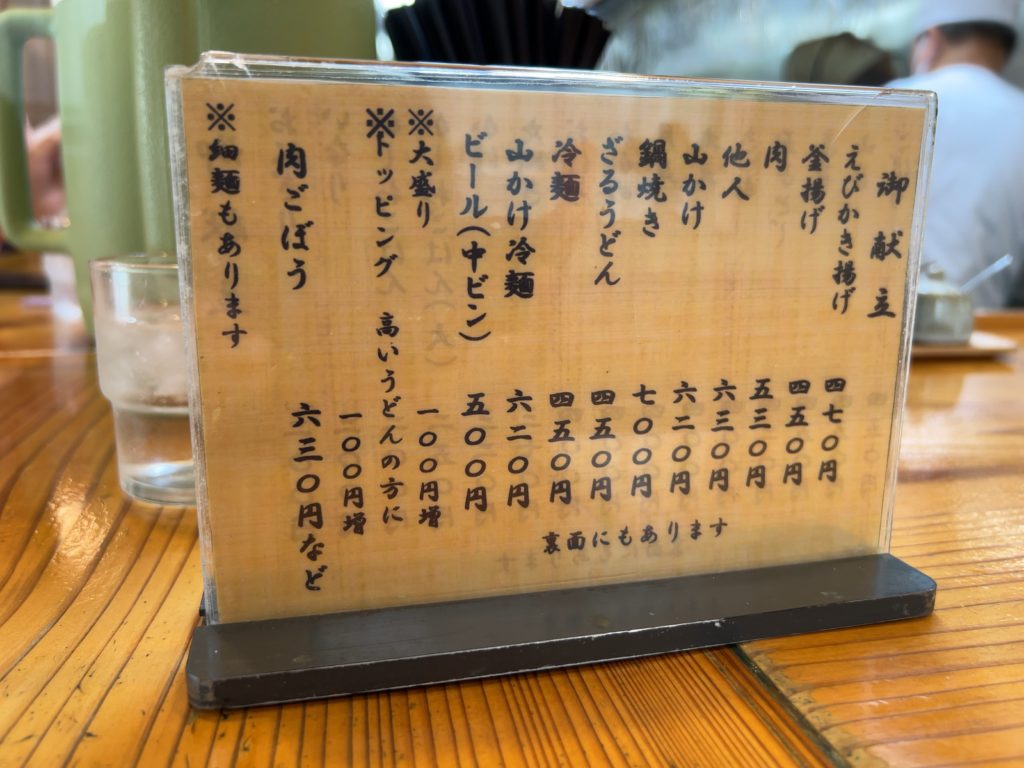 御献立
えびかき揚げ 四七〇円
釜揚げ 四五〇円
肉 五三〇円
他人 六三〇円
山かけ 六二〇円
鍋焼き 七〇〇円
ざるうどん 四五〇円
冷麺 四五〇円
山かけ冷麺 六二〇円
ビール(中ビン) 五〇〇円
※大盛り 一〇〇円増
※トッピング 高いうどんの方に
一〇〇円増
肉ごぼう 六三〇円など
※細麺もあります
裏面にもあります